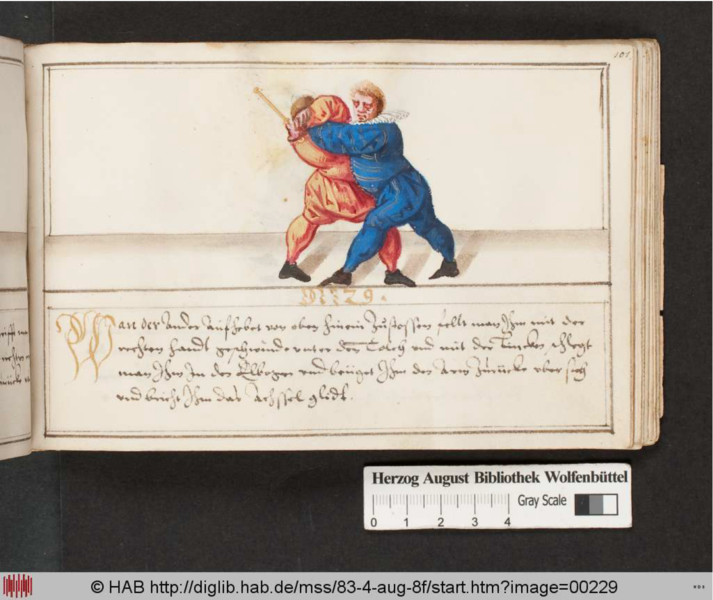 101
N 29.
Wan der Ander Aufhebet von oben hinein Zustossen felt man Ihm mit der
rechten handt geschwinde unter den Tolch und mit der Lincken schlegt
man Ihm In den Elbogen und beüget Ihm den Arm Zurücke uber sich
und bricht Ihm das Achssel gledt.
Herzog August Bibliothek Wolfenbüttel
Gray Scale
0 1 2 3 4
© HAB http://diglib.hab.de/mss/83-4-aug-8f/start.htm?image=00229